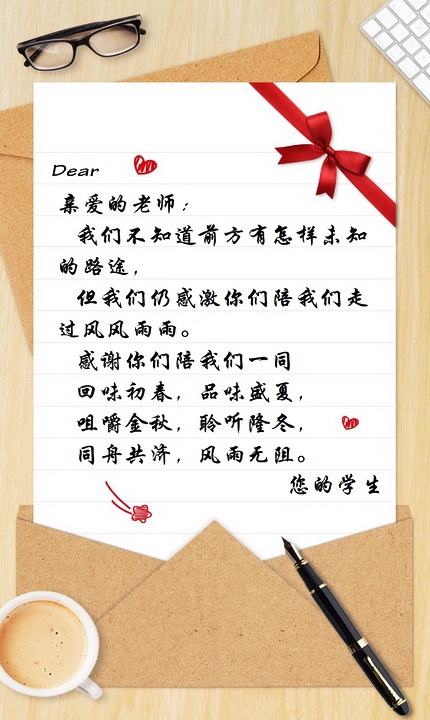 Dear
亲爱的老师：
我们不知道前方有怎样未知
的路途，
但我们仍感激你们陪我们走
过风风雨雨。
感谢你们陪我们一同
回味初春，品味盛夏，
咀嚼金秋，聆听隆冬，
同舟共济，风雨无阻。
您的学生